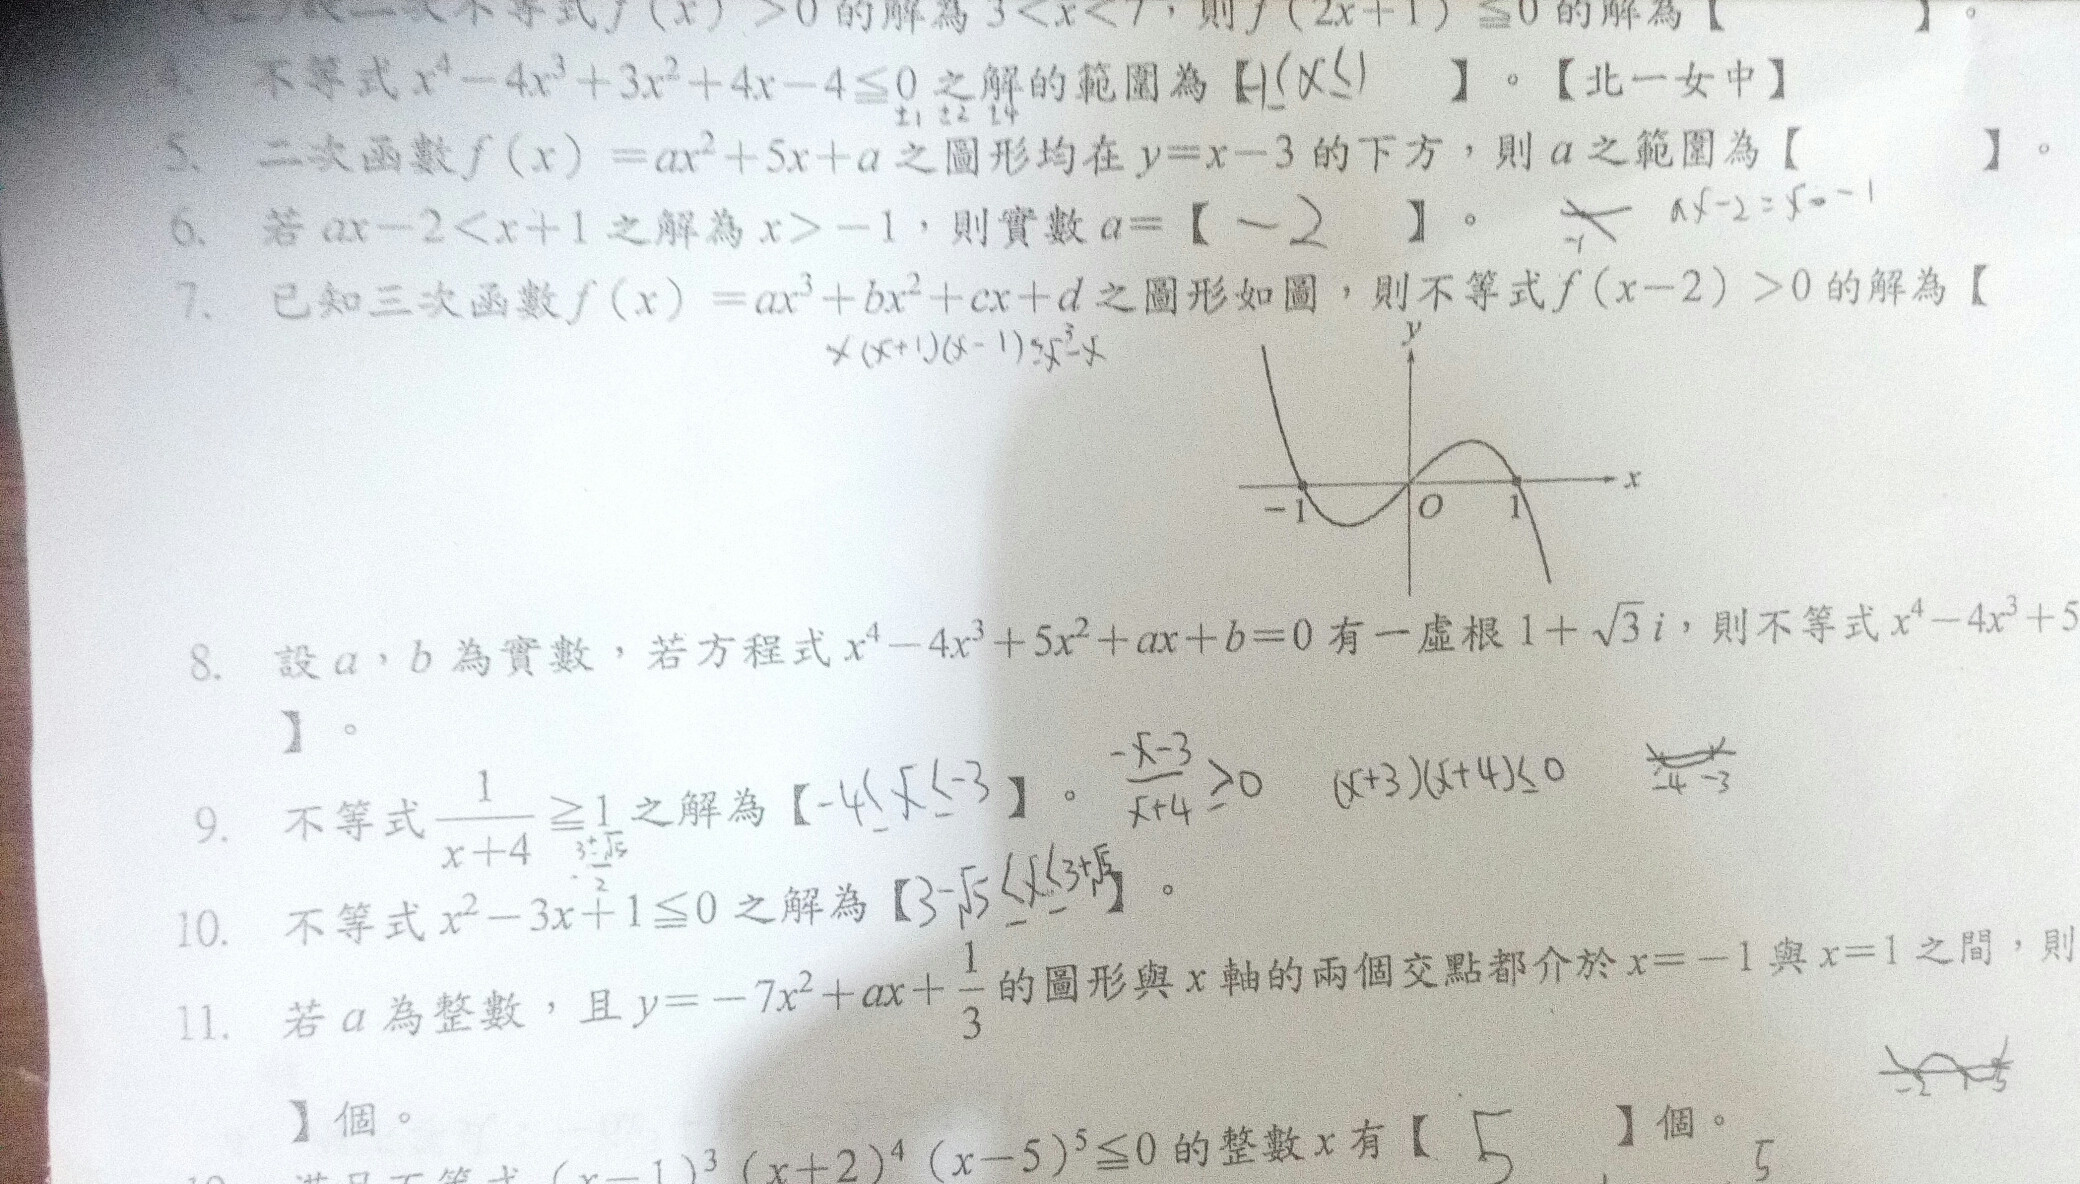 設二次不等式 f(x)>0 的解為 3<x<7,則 f(2x+1)≦0 的解為【 】。
4. 不等式 x⁴-4x³+3x²+4x-4≦0 之解的範圍為【-1≤x≤1 】。【北一女中】
±1 ±2 ±4
5. 二次函數 f(x)=ax²+5x+a 之圖形均在 y=x-3 的下方,則 a 之範圍為【 】。
6. 若 ax-2<x+1 之解為 x>-1,則實數 a=【 -2 】。
-1
7. 已知三次函數 f(x)=ax³+bx²+cx+d 之圖形如圖,則不等式 f(x-2)>0 的解為【
x(x+1)(x-1)=x³-x
y
-1 O 1 x
8. 設 a,b 為實數,若方程式 x⁴-4x³+5x²+ax+b=0 有一虛根 1+√3i,則不等式 x⁴-4x³+5
】。
9. 不等式 1/(x+4) ≧1 之解為【-4≤x≤-3】。 (-x-3)/(x+4) ≥0 (x+3)(x+4)≤0 -4 -3
(3±√5)/2
10. 不等式 x²-3x+1≦0 之解為【3-√5≤x≤3+√5】。
11. 若 a 為整數,且 y=-7x²+ax+1/3 的圖形與 x 軸的兩個交點都介於 x=-1 與 x=1 之間,則
】個。
-2 1 5
滿足不等式 (x-1)³(x+2)⁴(x-5)⁵≦0 的整數 x 有【 5 】個。 5